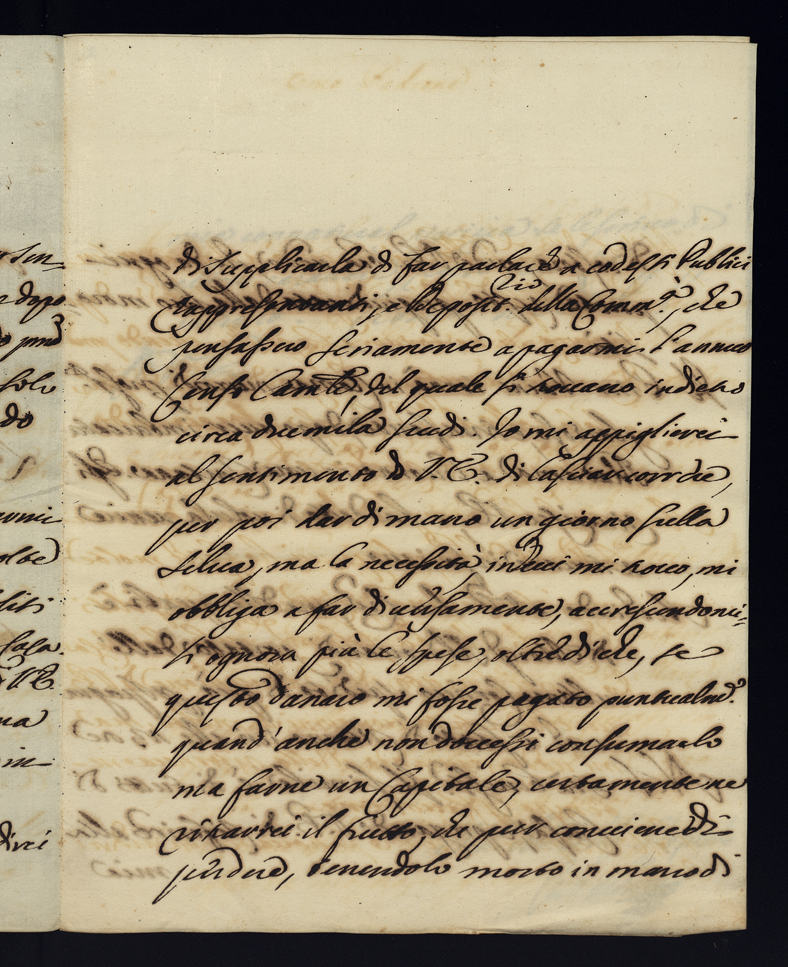 di supplicarla di far parlare a codesti Publici
rappresentanti, e Deposit.rio della Comm.à, che
pensassero seriamente a pagarmi l'annuo
Censo Cam.le, del quale si trovano indietro
circa due mila scudi. Io mi appiglierei
al sentimento di V.E. di lasciar correre,
per poi dar di mano un giorno sulla
Selva, ma la necessità in cui mi trovo, mi
obbliga a far diversamente, accrescendomi=
si ognora più le spese, oltre di che, se
questo danaro mi fosse pagato puntualm.e
quand'anche non dovessi consumarlo
ma farne un Capitale, certamente ne
ritrarrei il frutto, che pur conviene di=
perdere, tenendolo morto in mano di